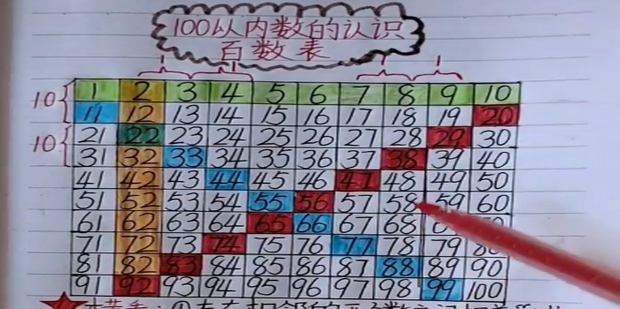 100以内数的认识
百数表
1 2 3 4 5 6 7 8 9 10
10 11 12 13 14 15 16 17 18 19 20
10 21 22 23 24 25 26 27 28 29 30
31 32 33 34 35 36 37 38 39 40
41 42 43 44 45 46 47 48 49 50
51 52 53 54 55 56 57 58 59 60
61 62 63 64 65 66 67 68
71 72 73 74 75 76 77 78 79
81 82 83 84 85 86 87 88 89 90
91 92 93 94 95 96 97 98 99 100